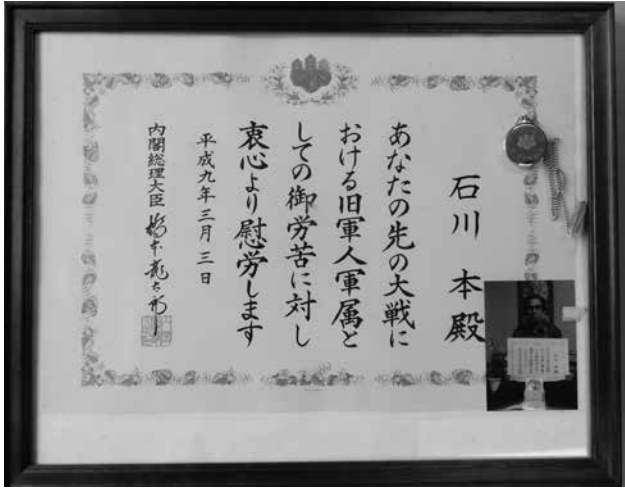 石川 本殿
あなたの先の大戦に
おける旧軍人軍属と
しての御労苦に対し
衷心より慰労します
平成九年三月三日
内閣総理大臣 橋本龍太郎